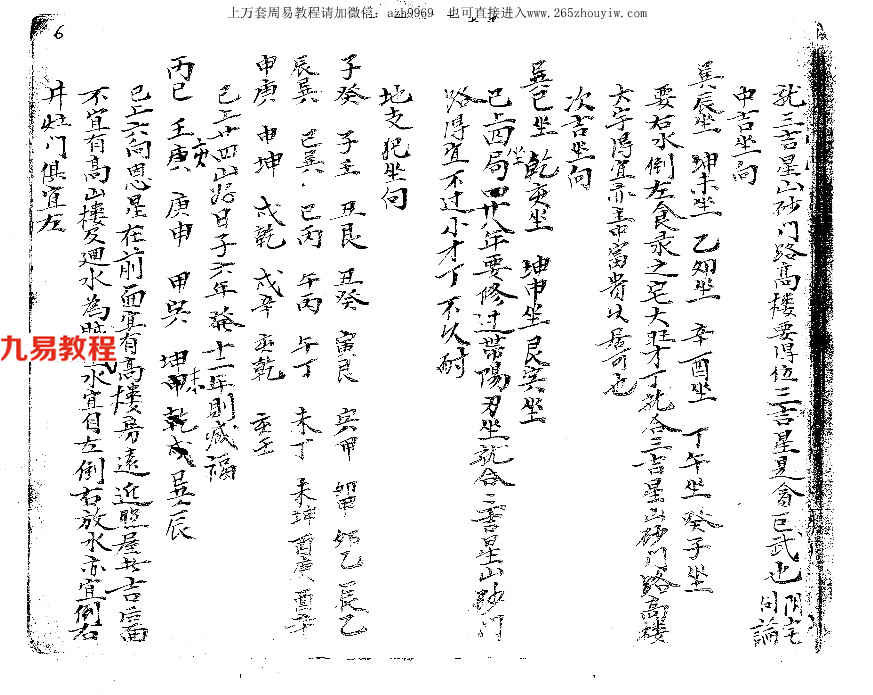 上万套周易教程请加微信：azh9969 也可直接进入www.265zhouyiw.com
6
就三吉星山砂门路高楼要得位三吉星是贪巨武也阴宅同論
中吉坐向
巽辰坐 坤未坐 乙卯坐 辛酉坐 丁午坐 癸子坐
要右水倒左食录之宅大旺才丁就合三吉星山砂门路高楼
大午得宜亦主中富贵久居可也
次吉坐向
巽巳坐 乾亥坐 坤申坐 艮寅坐
已上四局坐廿八年要修过带陽刃坐就合三吉星山砂门
路得宜不过小才丁不久耐
地支犯坐向
子癸 子壬 丑艮 丑癸 寅艮 寅甲 卯甲 卯乙 辰乙
辰巽 巳巽 巳丙 午丙 午丁 未丁 未坤 酉庚 酉辛
申庚 申坤 戌乾 戌辛 亥乾 亥壬
已上廿四山好日子六年發十二年則減福
丙巳 壬亥 庚申 甲寅 坤未 乾戌 巽辰
已上六向恩星在前面宜有高樓旁遠近照屋共吉當面
不宜有高山樓及迴水為 水宜自左倒右放水亦宜倒右
井灶门俱宜左
九易教程